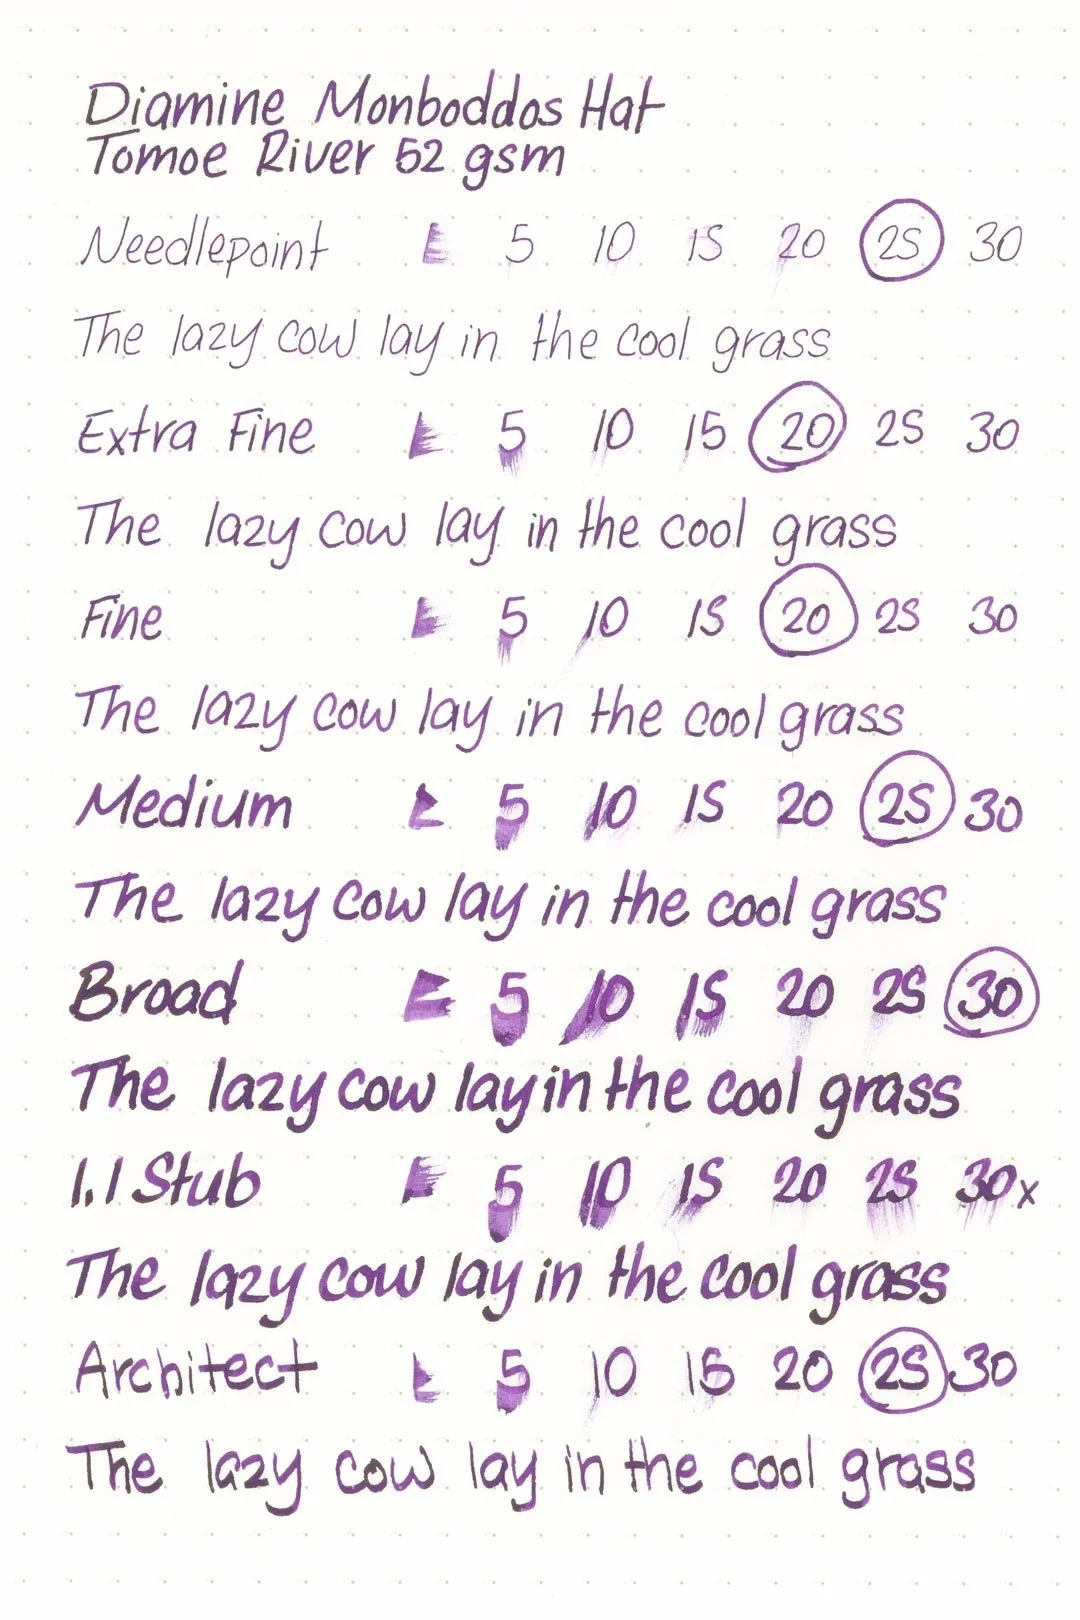 Diamine Monboddos Hat
Tomoe River 52 gsm
Needlepoint L 5 10 15 20 25 30
The lazy cow lay in the cool grass
Extra Fine L 5 10 15 20 25 30
The lazy cow lay in the cool grass
Fine L 5 10 15 20 25 30
The lazy cow lay in the cool grass
Medium L 5 10 15 20 25 30
The lazy cow lay in the cool grass
Broad L 5 10 15 20 25 30
The lazy cow lay in the cool grass
1.1 Stub L 5 10 15 20 25 30x
The lazy cow lay in the cool grass
Architect L 5 10 15 20 25 30
The lazy cow lay in the cool grass